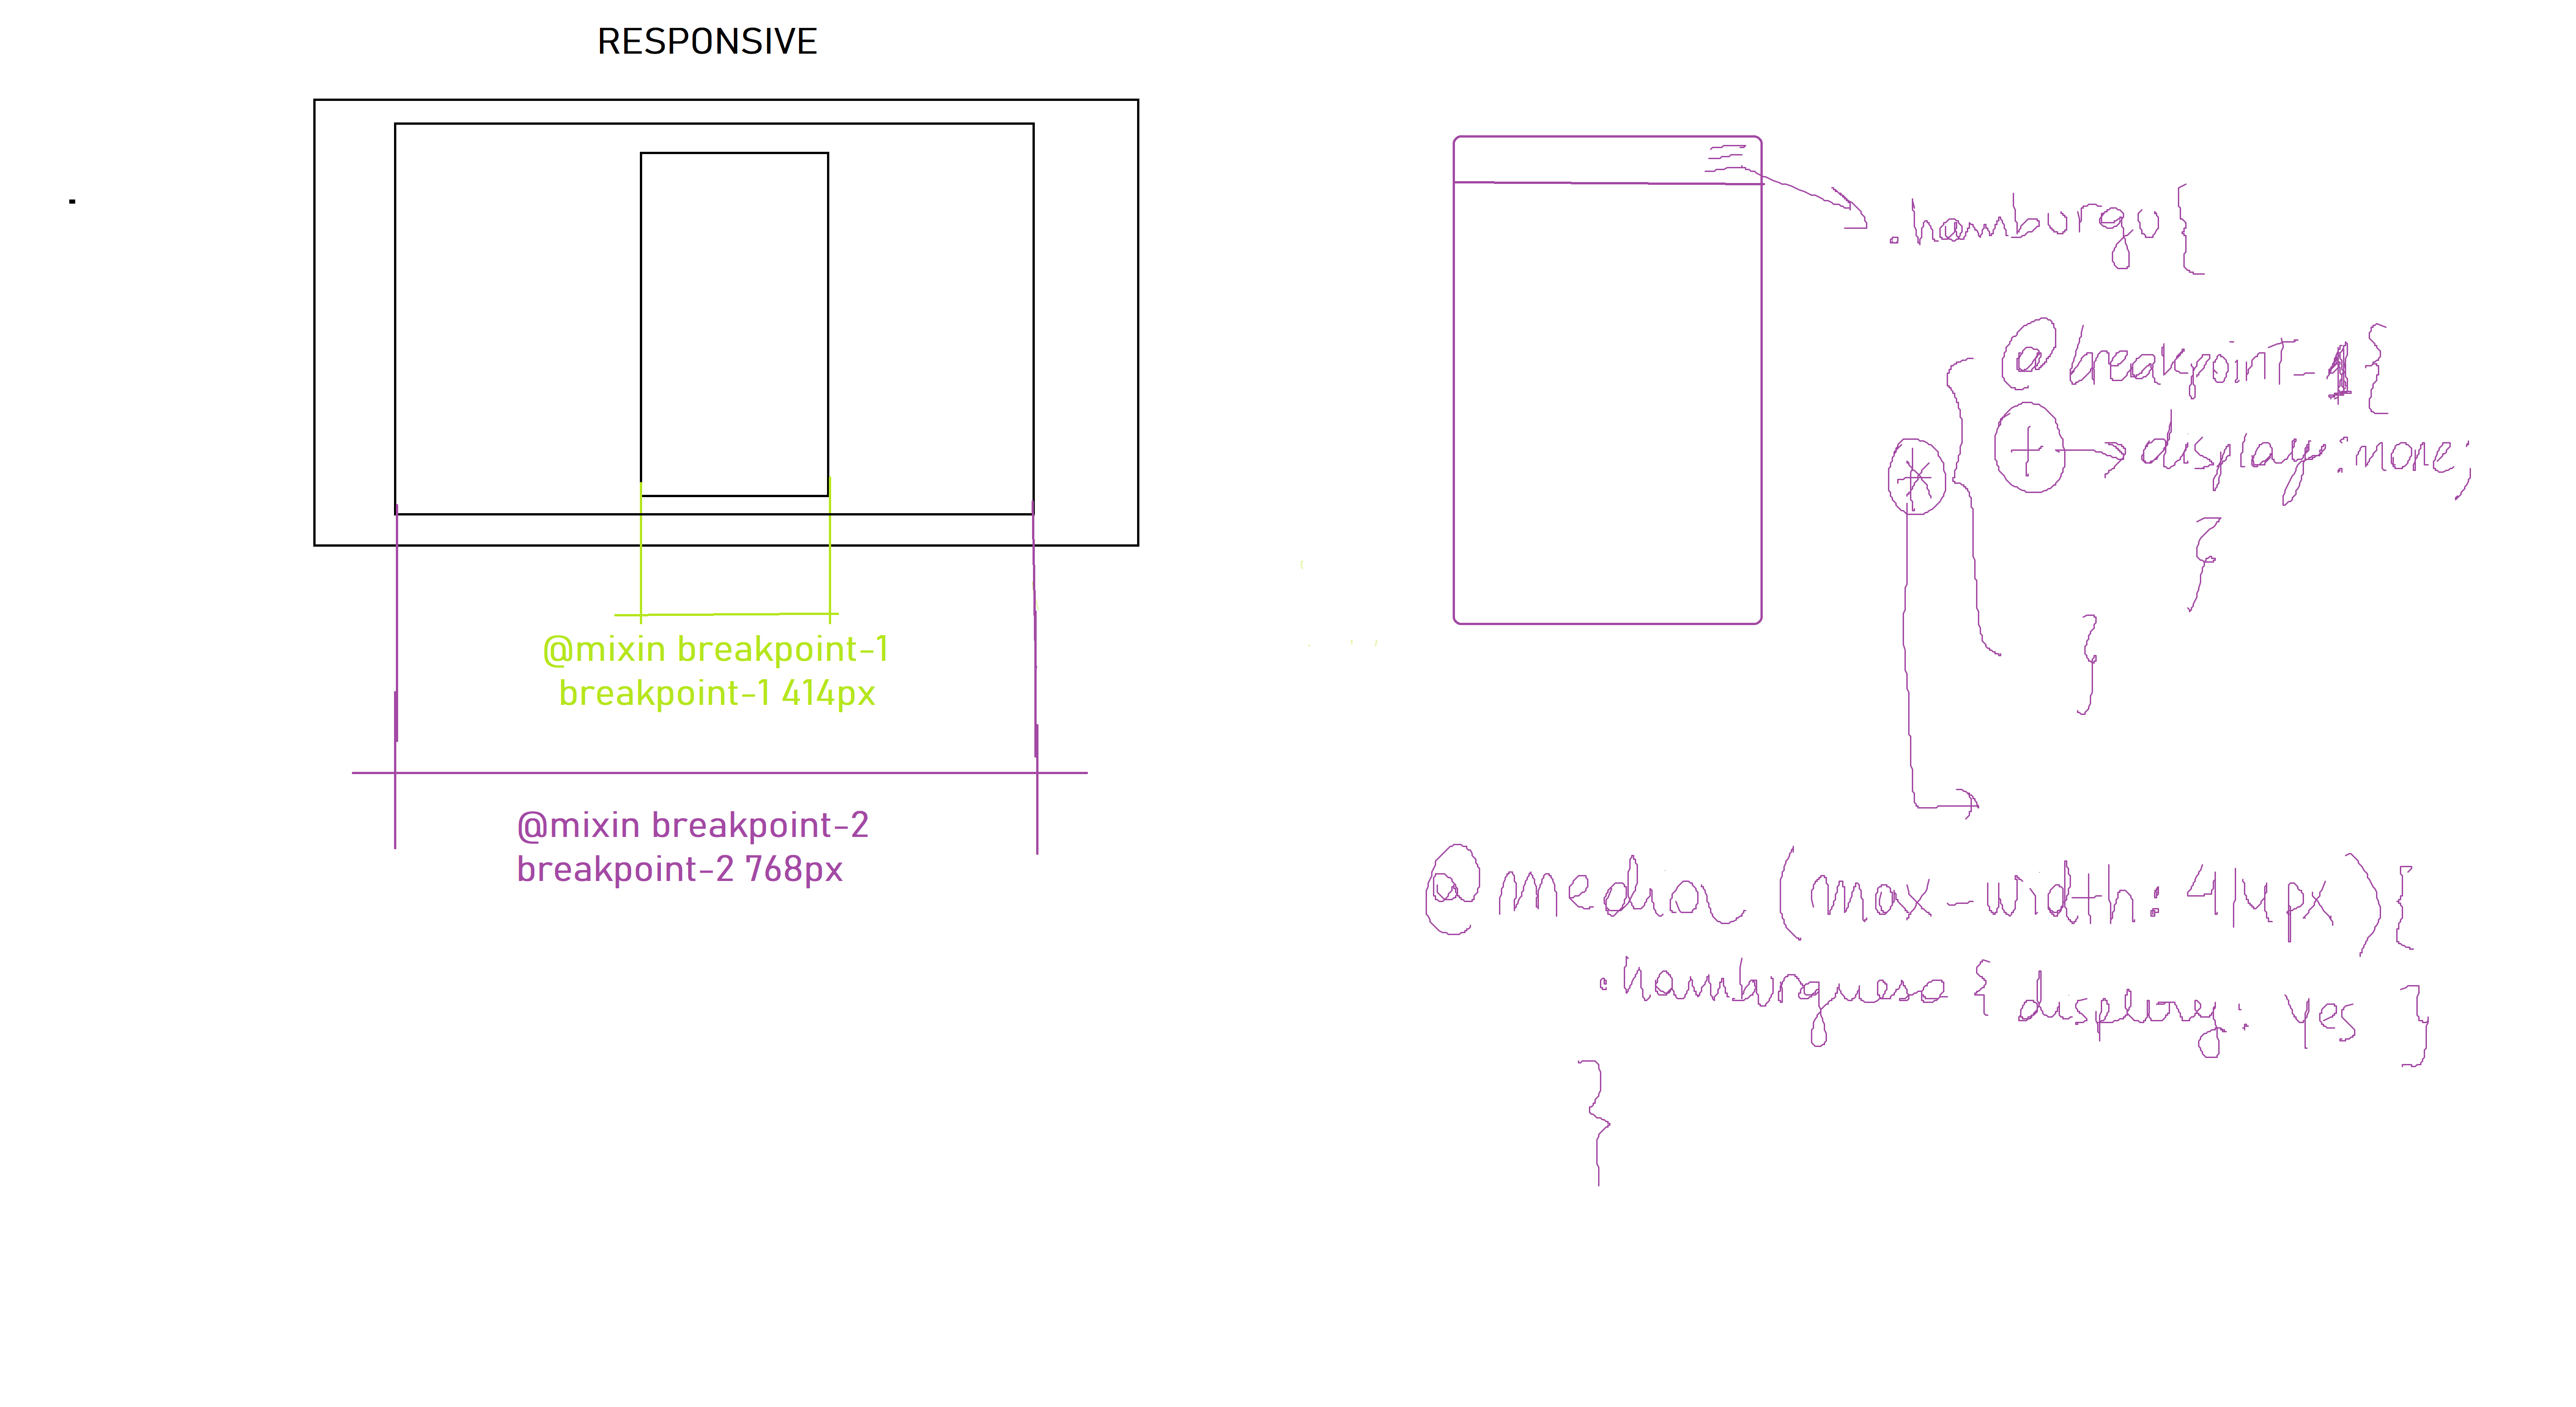 RESPONSIVE
@mixin breakpoint-1
breakpoint-1 414px
@mixin breakpoint-2
breakpoint-2 768px
.hamburgu{
@breakpoint-1{
+ → display:none;
}
}
*
@media (max-width: 414px){
.hamburguesa { display: yes }
}